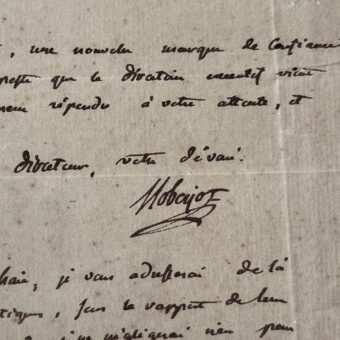 , une nouvelle marque de Confiance
que le directoire executif vient
répondre à votre attente, et
directeur, votre dévoué.
je vous adresserai de là
, sous le rapport de leur
je ne négligerai rien pour